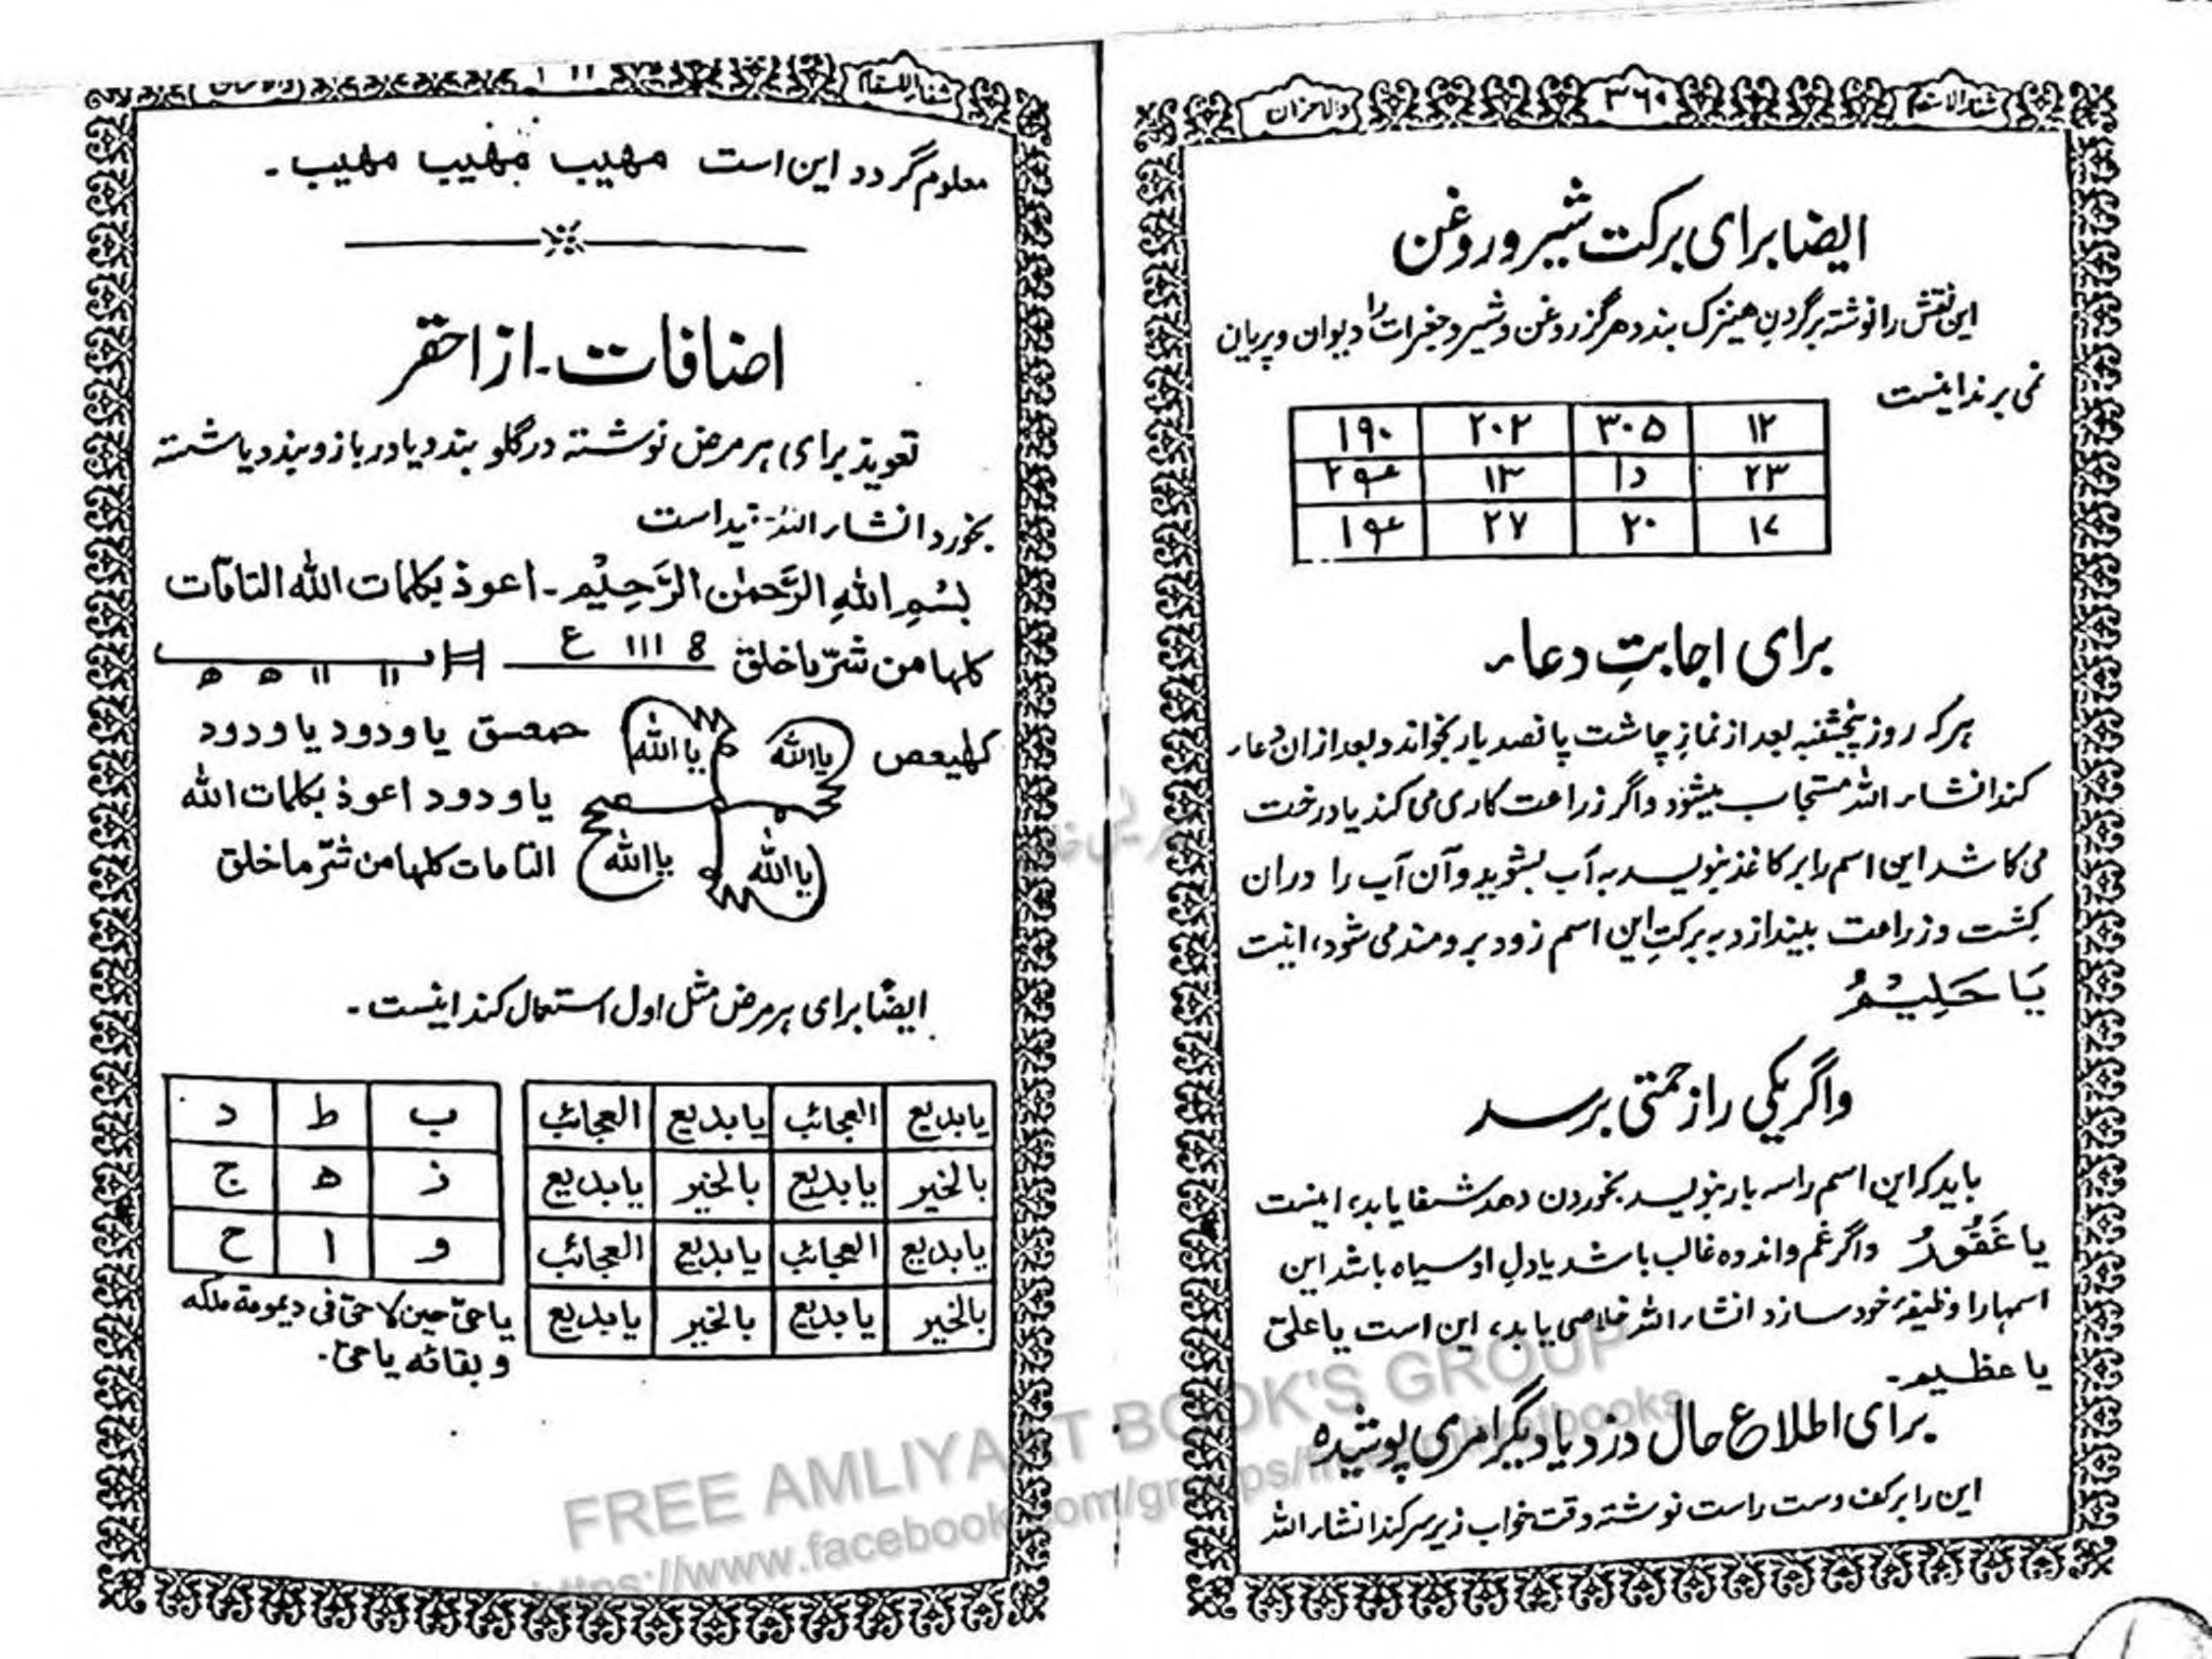 شفاء الاسقام ۳۶۰ والاحزان
ایضا برای برکت شیر و روغن
این نقش را نوشته برگردنِ هینزک بندد هرگز روغن و شیر و جغرات را دیوان و پریان
نمی برند اینست
۱۲ ۳۰۵ ۲۰۲ ۱۹۰
۲۳ ۱۵ ۱۳
۱۷ ۲۰ ۲۷
برای اجابتِ دعاء
هرکه روز پنجشنبه بعد از نمازِ چاشت پانصد بار بخواند و بعد ازان دعاء
کند انشاء الله مستجاب میشود واگر زراعت کاری می کند یا درخت
می کاشد این اسم را بر کاغذ بنویسد به آب بشوید و آن آب را دران
کشت و زراعت بیندازد به برکتِ این اسم زود برومند می شود، اینست
یَا حَلِیْمُ
واگر یکی را زحمتی برسد
باید که این اسم را سه بار بنویسد بخوردن دهد شفا یابد، اینست
یا غَفُورُ واگر غم و اندوه غالب باشد یا دلِ او سیاه باشد این
اسمها را وظیفۂ خود سازد انشاء الله خلاصی یابد، این است یا علیّ
یا عظیم۔
برای اطلاع حال دزد یا دیگر امری پوشیده
این را بر کف دست راست نوشته وقت خواب زیر سر کند انشاء الله
شفاء للسقام
معلوم گردد این است مهیب مهیب مهیب ۔
اضافات ۔ از احقر
تعویذ برای هر مرض نوشته در گلو بندد یا در بازو بندد یا شسته
بخورد انشاء الله
بِسْمِ اللهِ الرَّحمٰن الرَّحِیْم ۔ اعوذ بکلمات الله التامّات
کلها من شرّ ما خلق 8 ااا ع
کهیعص یا الله یا الله حمعسق یا ودود یا ودود
یا ودود اعوذ بکلمات الله
یا الله یا الله التامات کلها من شرّ ما خلق
ایضًا برای هر مرض مثل اول استعمال کند اینست ۔
یا بدیع العجائب یا بدیع العجائب
بالخیر یا بدیع بالخیر یا بدیع
یا بدیع العجائب یا بدیع العجائب
بالخیر یا بدیع بالخیر یا بدیع
ب ط د
ز ھ ج
و ا ح
یا حیّ حین لا حیّ فی دیمومة ملکه
و بقائه یا حیّ۔
FREE AMLIYAAT BOOK'S GROUP
https://www.facebook.com/groups/freeamliyatbooks